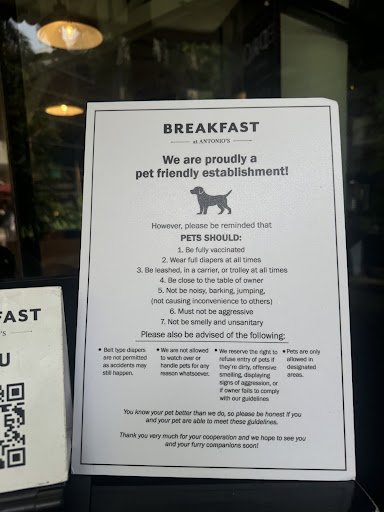 BREAKFAST
at ANTONIO'S
We are proudly a
pet friendly establishment!
However, please be reminded that
PETS SHOULD:
1. Be fully vaccinated
2. Wear full diapers at all times
3. Be leashed, in a carrier, or trolley at all times
4. Be close to the table of owner
5. Not be noisy, barking, jumping,
(not causing inconvenience to others)
6. Must not be aggressive
7. Not be smelly and unsanitary
Please also be advised of the following:
• Belt type diapers
are not permitted
as accidents may
still happen.
• We are not allowed
to watch over or
handle pets for any
reason whatsoever.
• We reserve the right to
refuse entry of pets if
they're dirty, offensive
smelling, displaying
signs of aggression, or
if owner fails to comply
with our guidelines
• Pets are only
allowed in
designated
areas.
You know your pet better than we do, so please be honest if you
and your pet are able to meet these guidelines.
Thank you very much for your cooperation and we hope to see you
and your furry companions soon!
FAST
O'S
U